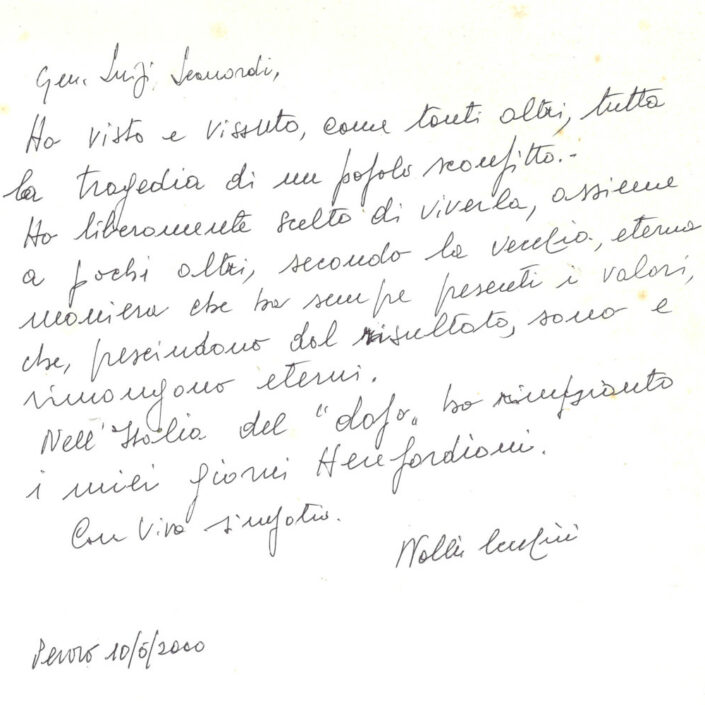 Gen. Luigi Leonardi,
Ho visto e vissuto, come tanti altri, tutta
la tragedia di un popolo sconfitto.-
Ho liberamente scelto di viverla, assieme
a pochi altri, secondo la vecchia, eterna
maniera che ha sempre presenti i valori,
che, prescindono dal risultato, sono e
rimangono eterni.
Nell'Italia del "dopo" ho rimpianto
i miei giorni Herefordiani.
Con viva simpatia.
10/6/2000